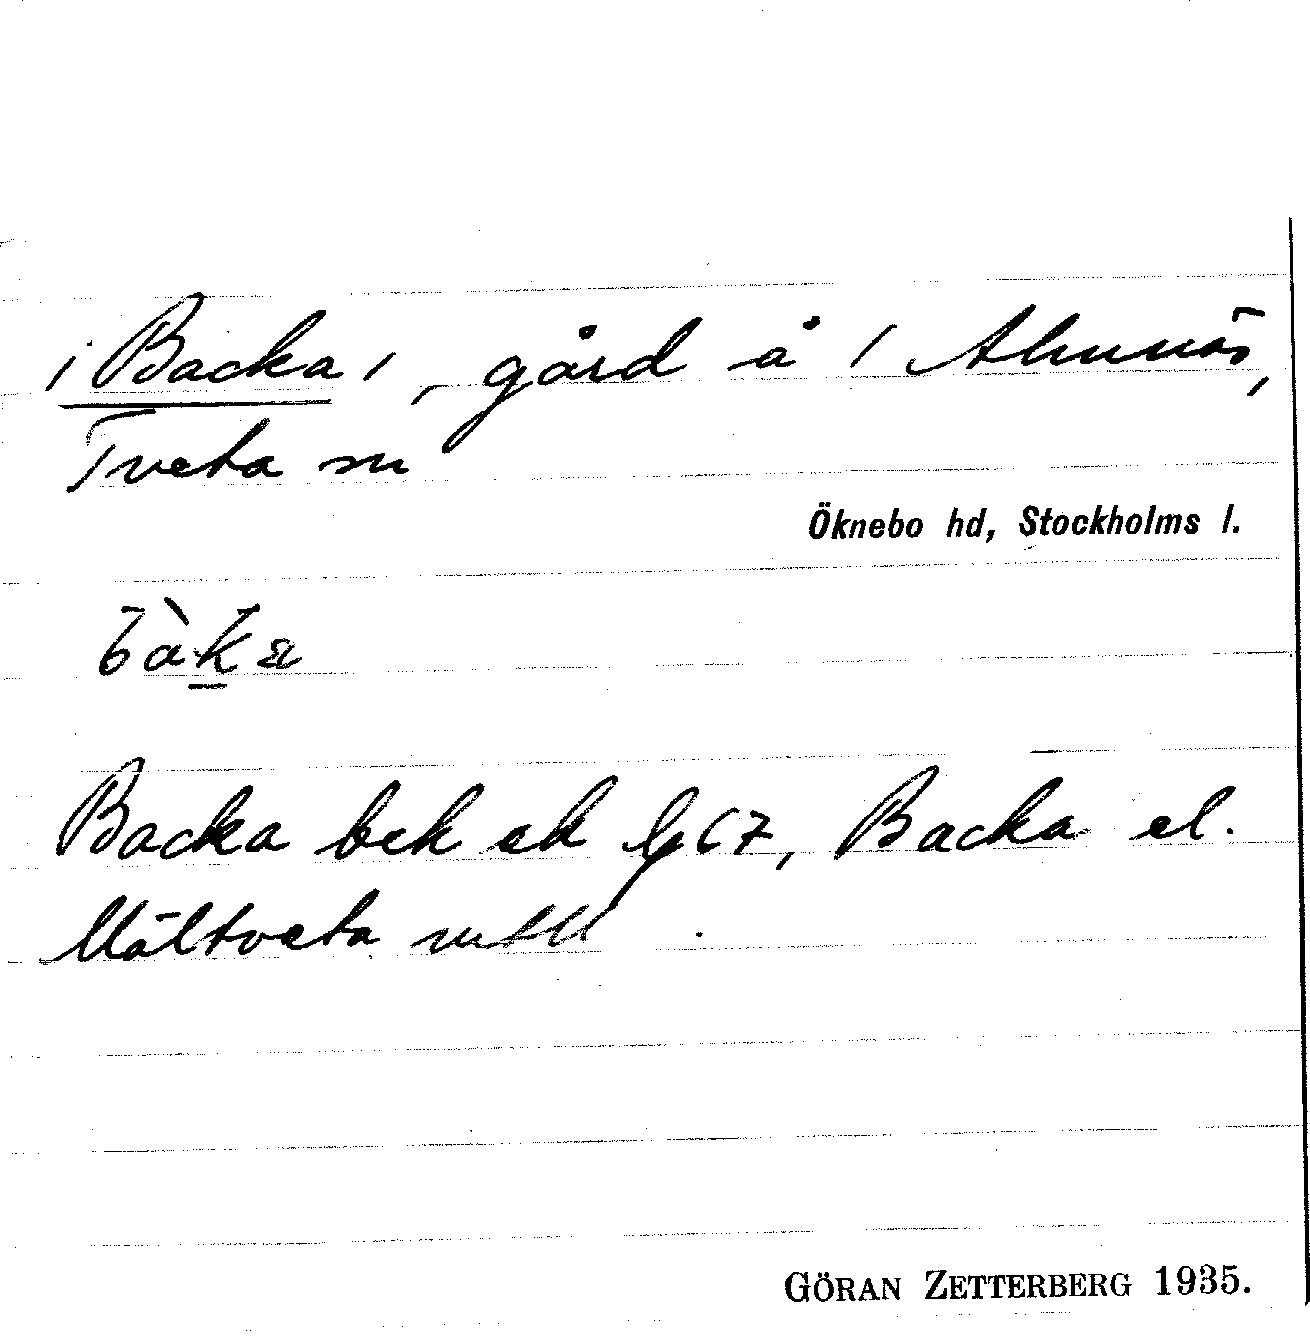 / Backa /, gård å / Almnäs,
Tveta sn
Öknebo hd, Stockholms l.
bàka
Backa bek ek bl 67, Backa el.
Mältveta
GÖRAN ZETTERBERG 1935.